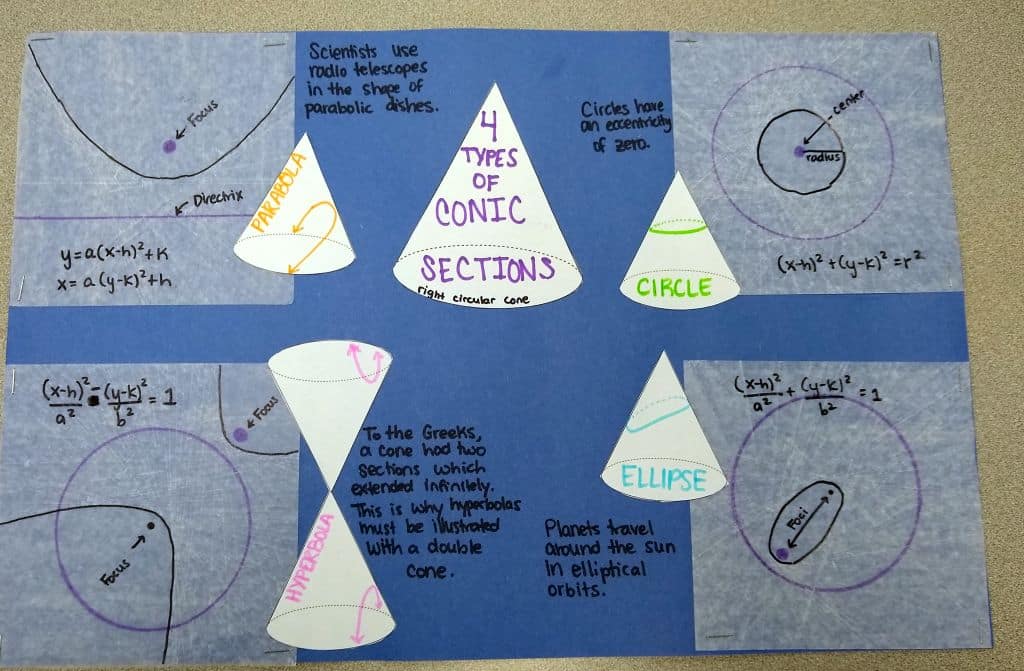 Scientists use
radio telescopes
in the shape of
parabolic dishes.
Focus
Directrix
y=a(x-h)²+k
x=a(y-k)²+h
PARABOLA
4
TYPES
OF
CONIC
SECTIONS
right circular cone
Circles have
an eccentricity
of zero.
center
radius
(x-h)²+(y-k)²=r²
CIRCLE
(x-h)²/a² - (y-k)²/b² = 1
Focus
Focus
HYPERBOLA
To the Greeks,
a cone had two
sections which
extended infinitely.
This is why hyperbolas
must be illustrated
with a double
cone.
ELLIPSE
Planets travel
around the sun
in elliptical
orbits.
(x-h)²/a² + (y-k)²/b² = 1
Foci